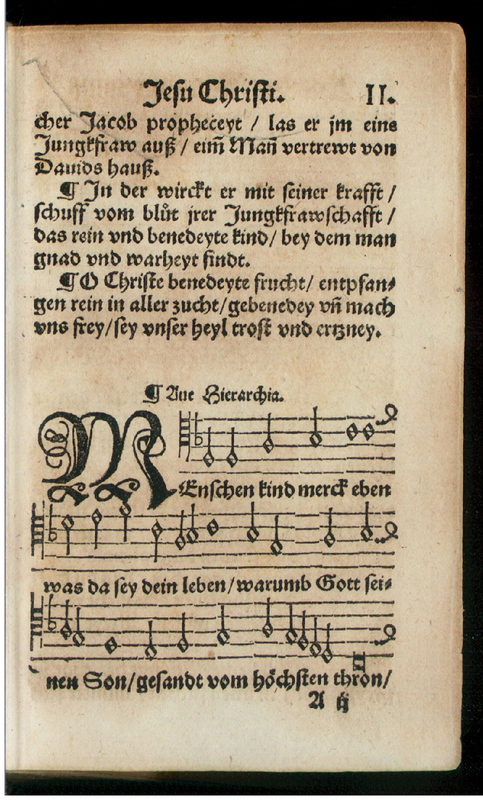 Jesu Christi. II.
cher Jacob propheceyt / las er jm eine
Jungkfraw auß / eim̃ Mañ vertrewt von
Dauids hauß.
¶ In der wirckt er mit seiner krafft /
schuff vom blůt jrer Jungkfrawschafft /
das rein vnd benedeyte kind / bey dem man
gnad vnd warheyt findt.
¶ O Christe benedeyte frucht / entpfan⸗
gen rein in aller zucht / gebenedey vñ mach
vns frey / sey vnser heyl trost vnd ertzney.
¶ Aue Hierarchia.
MEnschen kind merck eben
was da sey dein leben / warumb Gott sei⸗
nen Son / gesandt vom höchsten thron /
A ij